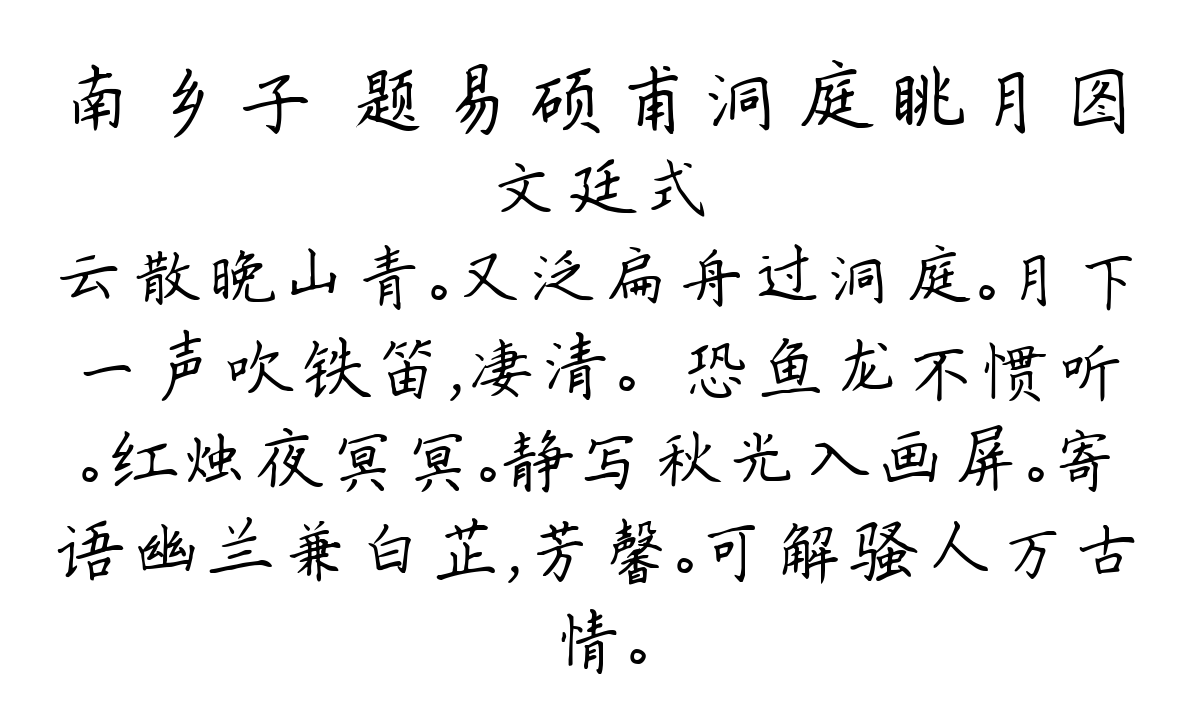 南乡子 题易硕甫洞庭眺月图
文廷式
云散晚山青。又泛扁舟过洞庭。月下
一声吹铁笛,凄清。恐鱼龙不惯听
。红烛夜冥冥。静写秋光入画屏。寄
语幽兰兼白芷,芳馨。可解骚人万古
情。